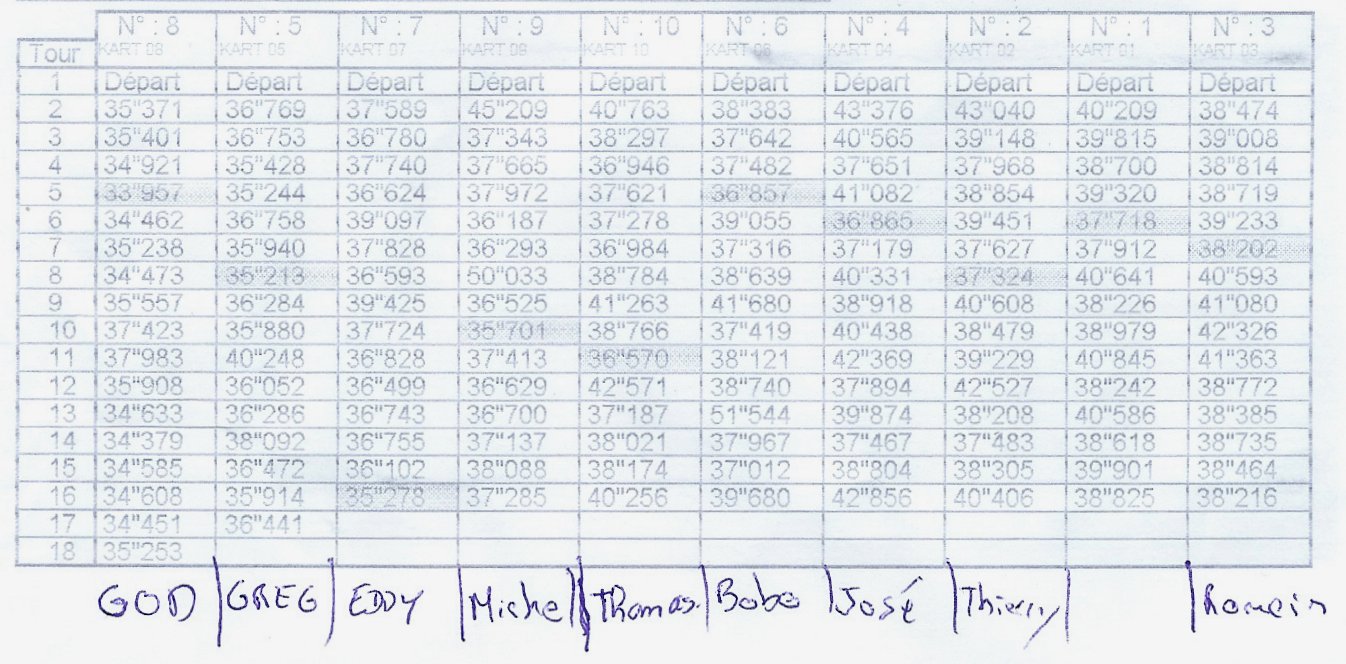 N° : 8 N° : 5 N° : 7 N° : 9 N° : 10 N° : 6 N° : 4 N° : 2 N° : 1 N° : 3
Tour KART 08 KART 05 KART 07 KART 09 KART 10 KART 06 KART 04 KART 02 KART 01 KART 03
1 Départ Départ Départ Départ Départ Départ Départ Départ Départ Départ
2 35"371 36"769 37"589 45"209 40"763 38"383 43"376 43"040 40"209 38"474
3 35"401 36"753 36"780 37"343 38"297 37"642 40"565 39"148 39"815 39"008
4 34"921 35"428 37"740 37"665 36"946 37"482 37"651 37"968 38"700 38"814
5 33"957 35"244 36"624 37"972 37"621 36"857 41"082 38"854 39"320 38"719
6 34"462 36"758 39"097 36"187 37"278 39"055 36"865 39"451 37"718 39"233
7 35"238 35"940 37"828 36"293 36"984 37"316 37"179 37"627 37"912 38"202
8 34"473 35"213 36"593 50"033 38"784 38"639 40"331 37"324 40"641 40"593
9 35"557 36"284 39"425 36"525 41"263 41"680 38"918 40"608 38"226 41"080
10 37"423 35"880 37"724 35"701 38"766 37"419 40"438 38"479 38"979 42"326
11 37"983 40"248 36"828 37"413 36"570 38"121 42"369 39"229 40"845 41"363
12 35"908 36"052 36"499 36"629 42"571 38"740 37"894 42"527 38"242 38"772
13 34"633 36"286 36"743 36"700 37"187 51"544 39"874 38"208 40"586 38"385
14 34"379 38"092 36"755 37"137 38"021 37"967 37"467 37"483 38"618 38"735
15 34"585 36"472 36"102 38"088 38"174 37"012 38"804 38"305 39"901 38"464
16 34"608 35"914 35"278 37"285 40"256 39"680 42"856 40"406 38"825 38"216
17 34"451 36"441
18 35"253
GOD GREG EDDY Michel Thomas Bobo José Thierry Romain